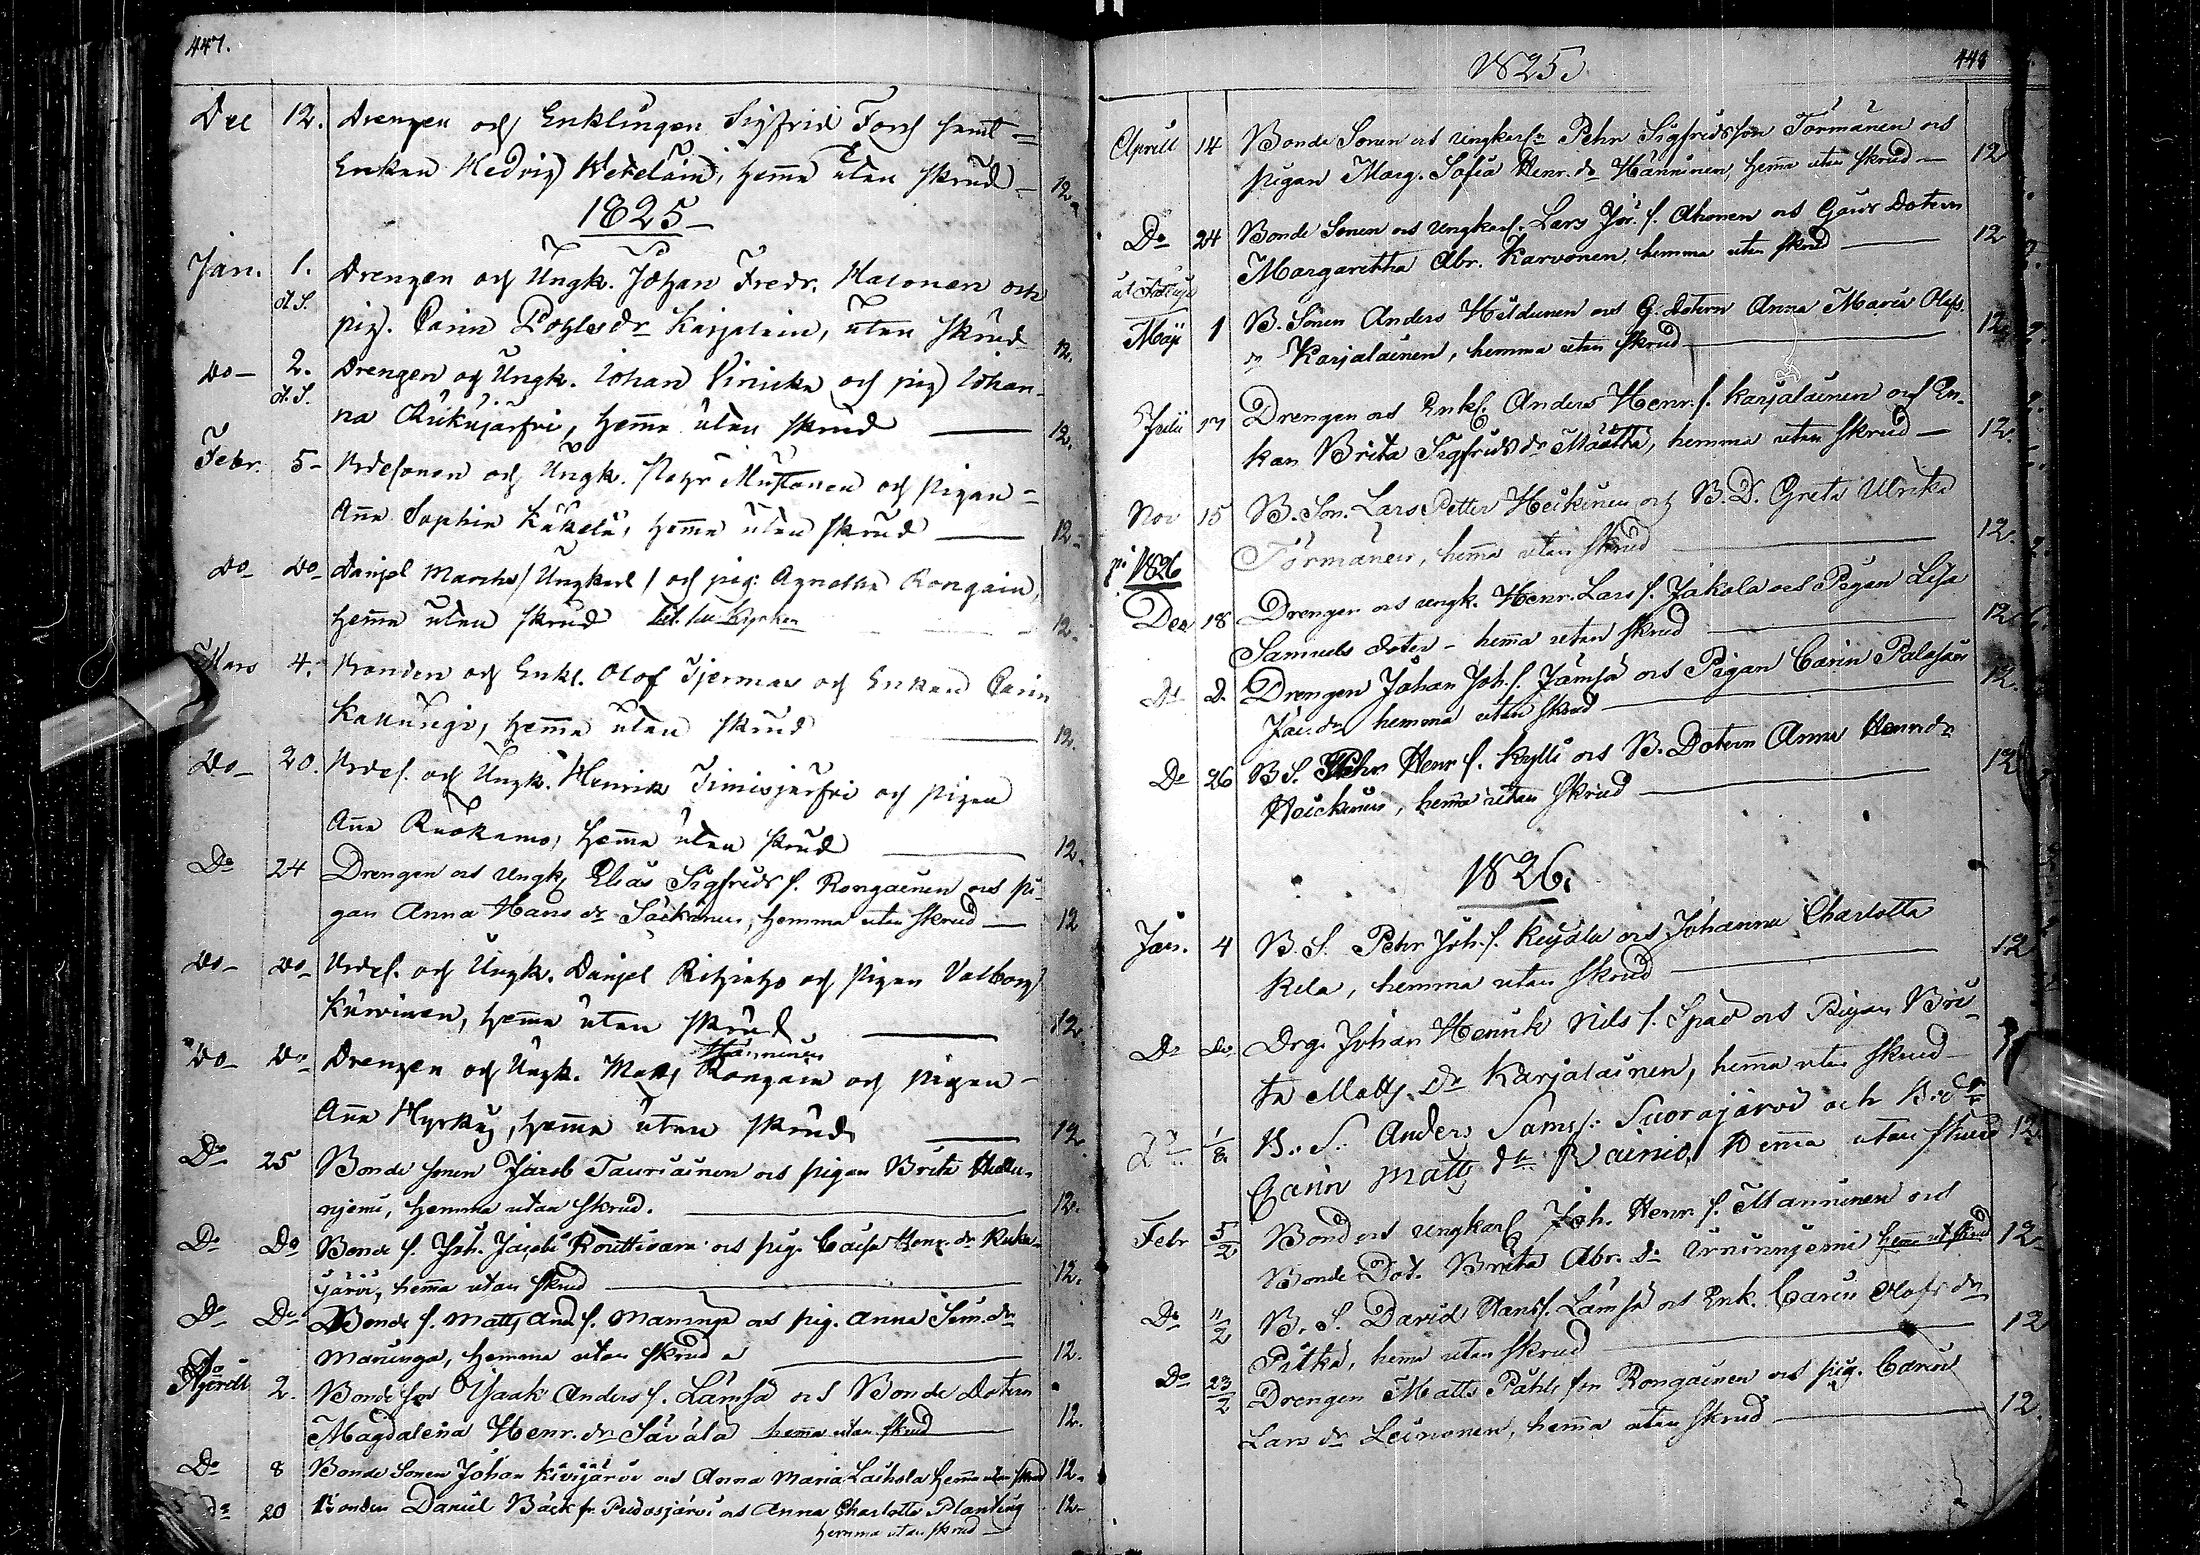 447.
Dec 12. Drengen och Enklingen Sigfrid Fors samt
Enkan Hedvig, hemma utan skrud 12
1825
Jan. 1. Drengen och Ungk. Johan Fredr. Halonen och
d.S. pig. Carin Karjalain, utan skrud 12.
Do 2. Drengen och Ungk. Johan Viricka och pig Johan-
d.S. na Rukujärfvi, hemma utan skrud 12.
Febr. 5 och Ungk. Pehr Mustonen och pigan
Anna Sophia Käkelä, hemma utan skrud 12
Do Do Daniel Ungkarl och pig: Agnetha Rongain,
hemma utan skrud 12.
Mars 4. Bonden och Enkl. Olof Tjerman och Enkan Carin
hemma utan skrud 12.
Do 20. och Ungk. Henrik Timisjerfvi och pigan
Anna Ruokamo, hemma utan skrud 12.
Do 24 Drengen och ungk Elias Sigfrids s. Rongainen och pi-
gan Anna Hans dr Säckinen, hemma utan skrud 12
Do Do och Ungk. Daniel och pigan Valborg
Kurvinen, hemma utan skrud 12.
Hänninen
Do Do Drengen och Ungk. Matts Rongain och pigan
Anna Hyrkes, hemma utan skrud 12.
Do 25 Bonde sonen Jacob Tauriainen och pigan Brita
njemi, hemma utan skrud. 12.
Do Do Bonde s. Joh. Jacobs Routtivara och pig. Caisa Henr. dr Ruku-
järvi, hemma utan skrud 12.
Do Do Bonde s. Matts And s. Maninga och pig. Anna Sim. dr
Maninga, hemma utan skrud 12.
Aprill 2. Bonde son Isaak Anders s. Lämsä och Bonde Dotern
Magdalena Henr. dr Säväla hemma utan skrud 12.
Do 8 Bonde Sonen Johan Kivijärvi och Anna Maria Laihola hemma utan skrud 12.
Do 20 Bonden Daniel Bäck fr. Pudosjärvi och Anna Charlotta Planting 12
hemma utan skrud
1825.
448
Aprill 14 Bonde Sonen och ungkarln Pehr Sigfridsson Törmänen och
pigan Marg. Sofia Henr. dr Hänninen, hemma utan skrud 12
Do 24 Bonde Sonen och ungkarl. Lars Jör. s. Ahonen och Gårds Dotern
Margaretha Abr. Karvonen, hemma utan skrud 12
Maji 1 B. Sonen Anders Hildunen och G. dotern Anna Maria Olofs
dr Karjalainen, hemma utan skrud 12
Julii 17 Drengen och Enkl. Anders Henr. s. Karjalainen och En-
kan Brita Sigfrids dr Määttä, hemma utan skrud 12.
Nov 15 B. Son. Lars Petter Heikinen och B. D. Greta Ulrika
Törmänen, hemma utan skrud 12.
1826
Dec 18 Drengen och ungk. Henr. Lars s. Jakola och Pigan Lisa
Samuels doter - hemma utan skrud 12
Do D. Drengen Johan Joh. s. Jämsä och Pigan Carin Palosaar
Jac. dr hemma utan skrud 12.
Do 26 B S. Pehr Henr s. Kylli och B. Dotern Anna Henr dr
Heickinen, hemma utan skrud 12
1826.
Jan. 4 B. S. Pehr Joh. s. och Johanna Charlotta
Kela, hemma utan skrud 12
Do Do Drg. Johan Henrik Nils s. Späd och Pigan Bri-
ta Matts dr Karjalainen, hemma utan skrud
Do 1/8. B. S. Anders Sams s. Suorajärvi och B. dr
Carin Matts dr Rainio, Hemma utan skrud 12
Febr 5/2 Bond och ungkarl Joh. Henr s. Manninen och
Bonde Dot. Brita Abr. dr hemma ut skrud 12
Do 11/2 B. S. David Hanss. Lämsä och Enk. Carin Olofs dr
Pitkä, hemma utan skrud 12
Do 23/2 Drengen Matts Påhls son Rongainen och pig. Carin
Lars dr Leinonen, hemma utan skrud 12.